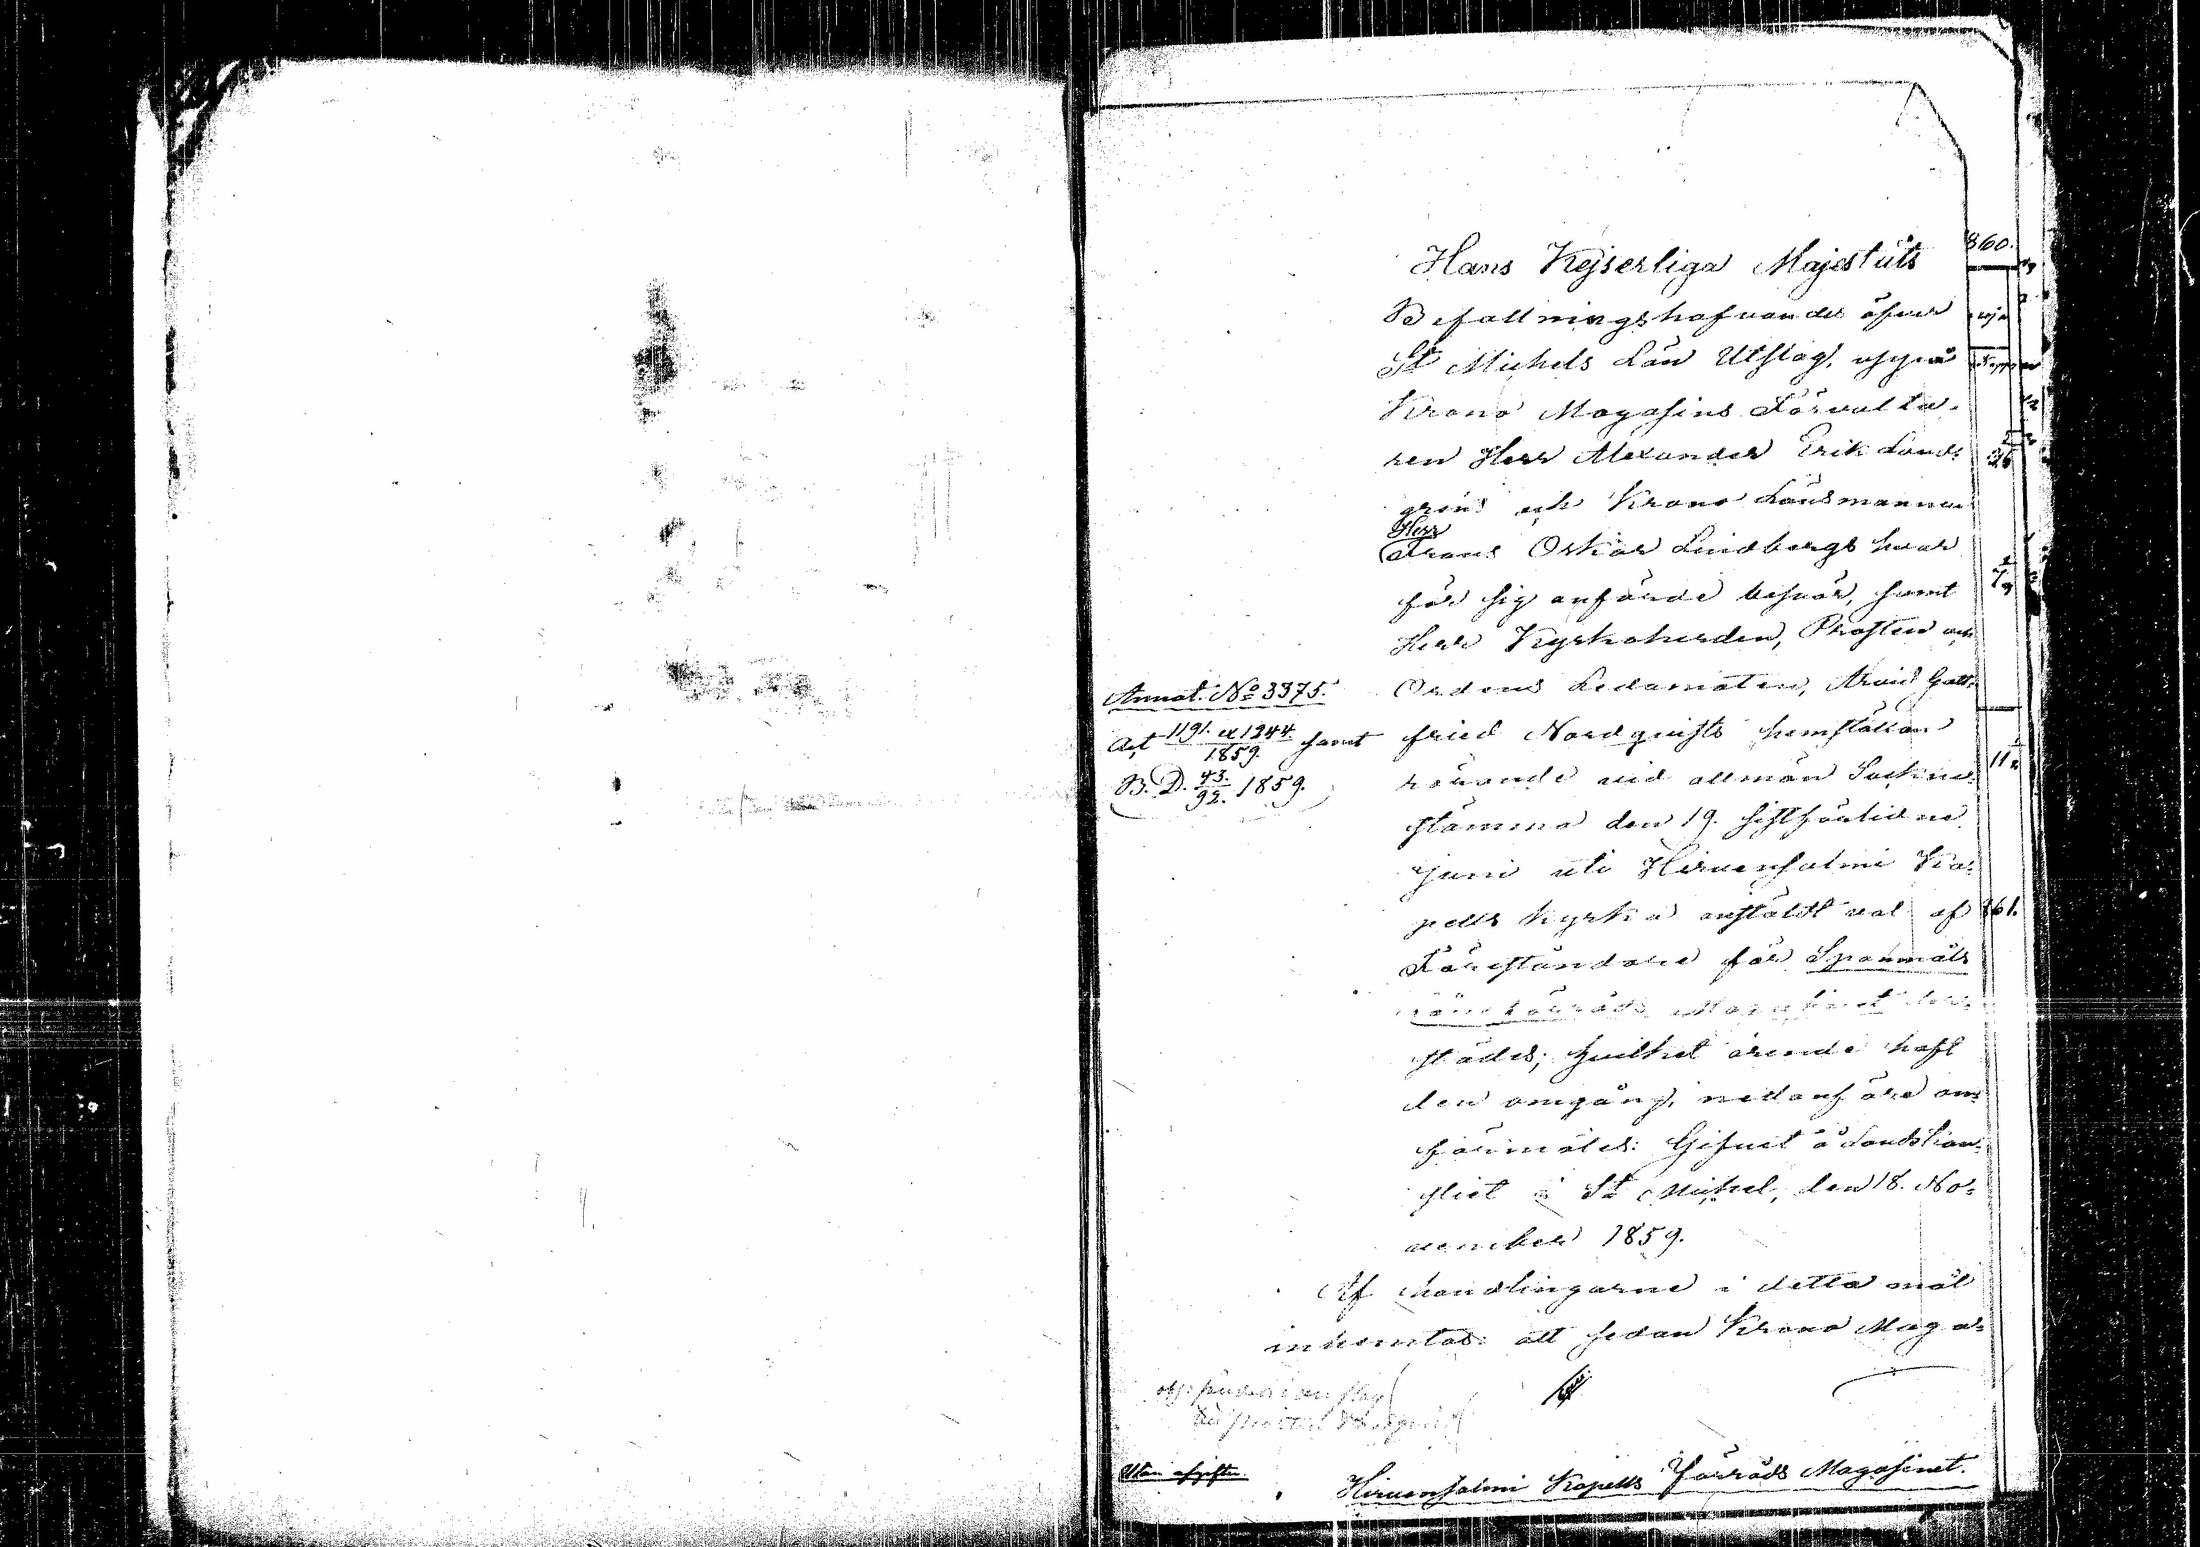 Hans Kejserliga Majestäts
Befallningshafvandes öfver
St Michels Län Utslag, uppå
Krono Magasins Förvalta-
ren Herr Alexander Erik Lund-
gréns och Krono Länsmannen
Herr
Frans Oskar Lindbergs hvar
för sig anförde besvär, samt
Herr Kyrkoherden, Prosten och
Ordens Ledamoten, Arvid Gott-
fried Nordqvists hemställan
rörande vid allmän Sockne-
stämma den 19. sistförlidne
Juni uti Hirvensalmi Ka-
pells kyrka anstäldt val af
Föreståndare för Spanmåls
låne förråds Magasinet der-
städes; hvilket ärende haft
den omgång, nedanföre om-
förmäles: Gifvet å Landskan-
sliet i St Michel, den 18. No-
vember 1859.
Af handlingarne i detta mål
inhemtas: att sedan Krono Maga-
Annot. No 3375.
Act 1191. et 1244 samt
1859.
B. D. 43. 1859.
92.
Utan afgift
Hirvensalmi Kapells Förråds Magasinet.
860.
861.